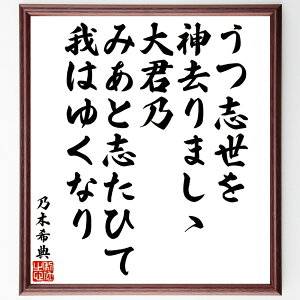 うつ志世を
神去りましゝ
大君乃
みあと志たひて
我はゆくなり
乃木希典